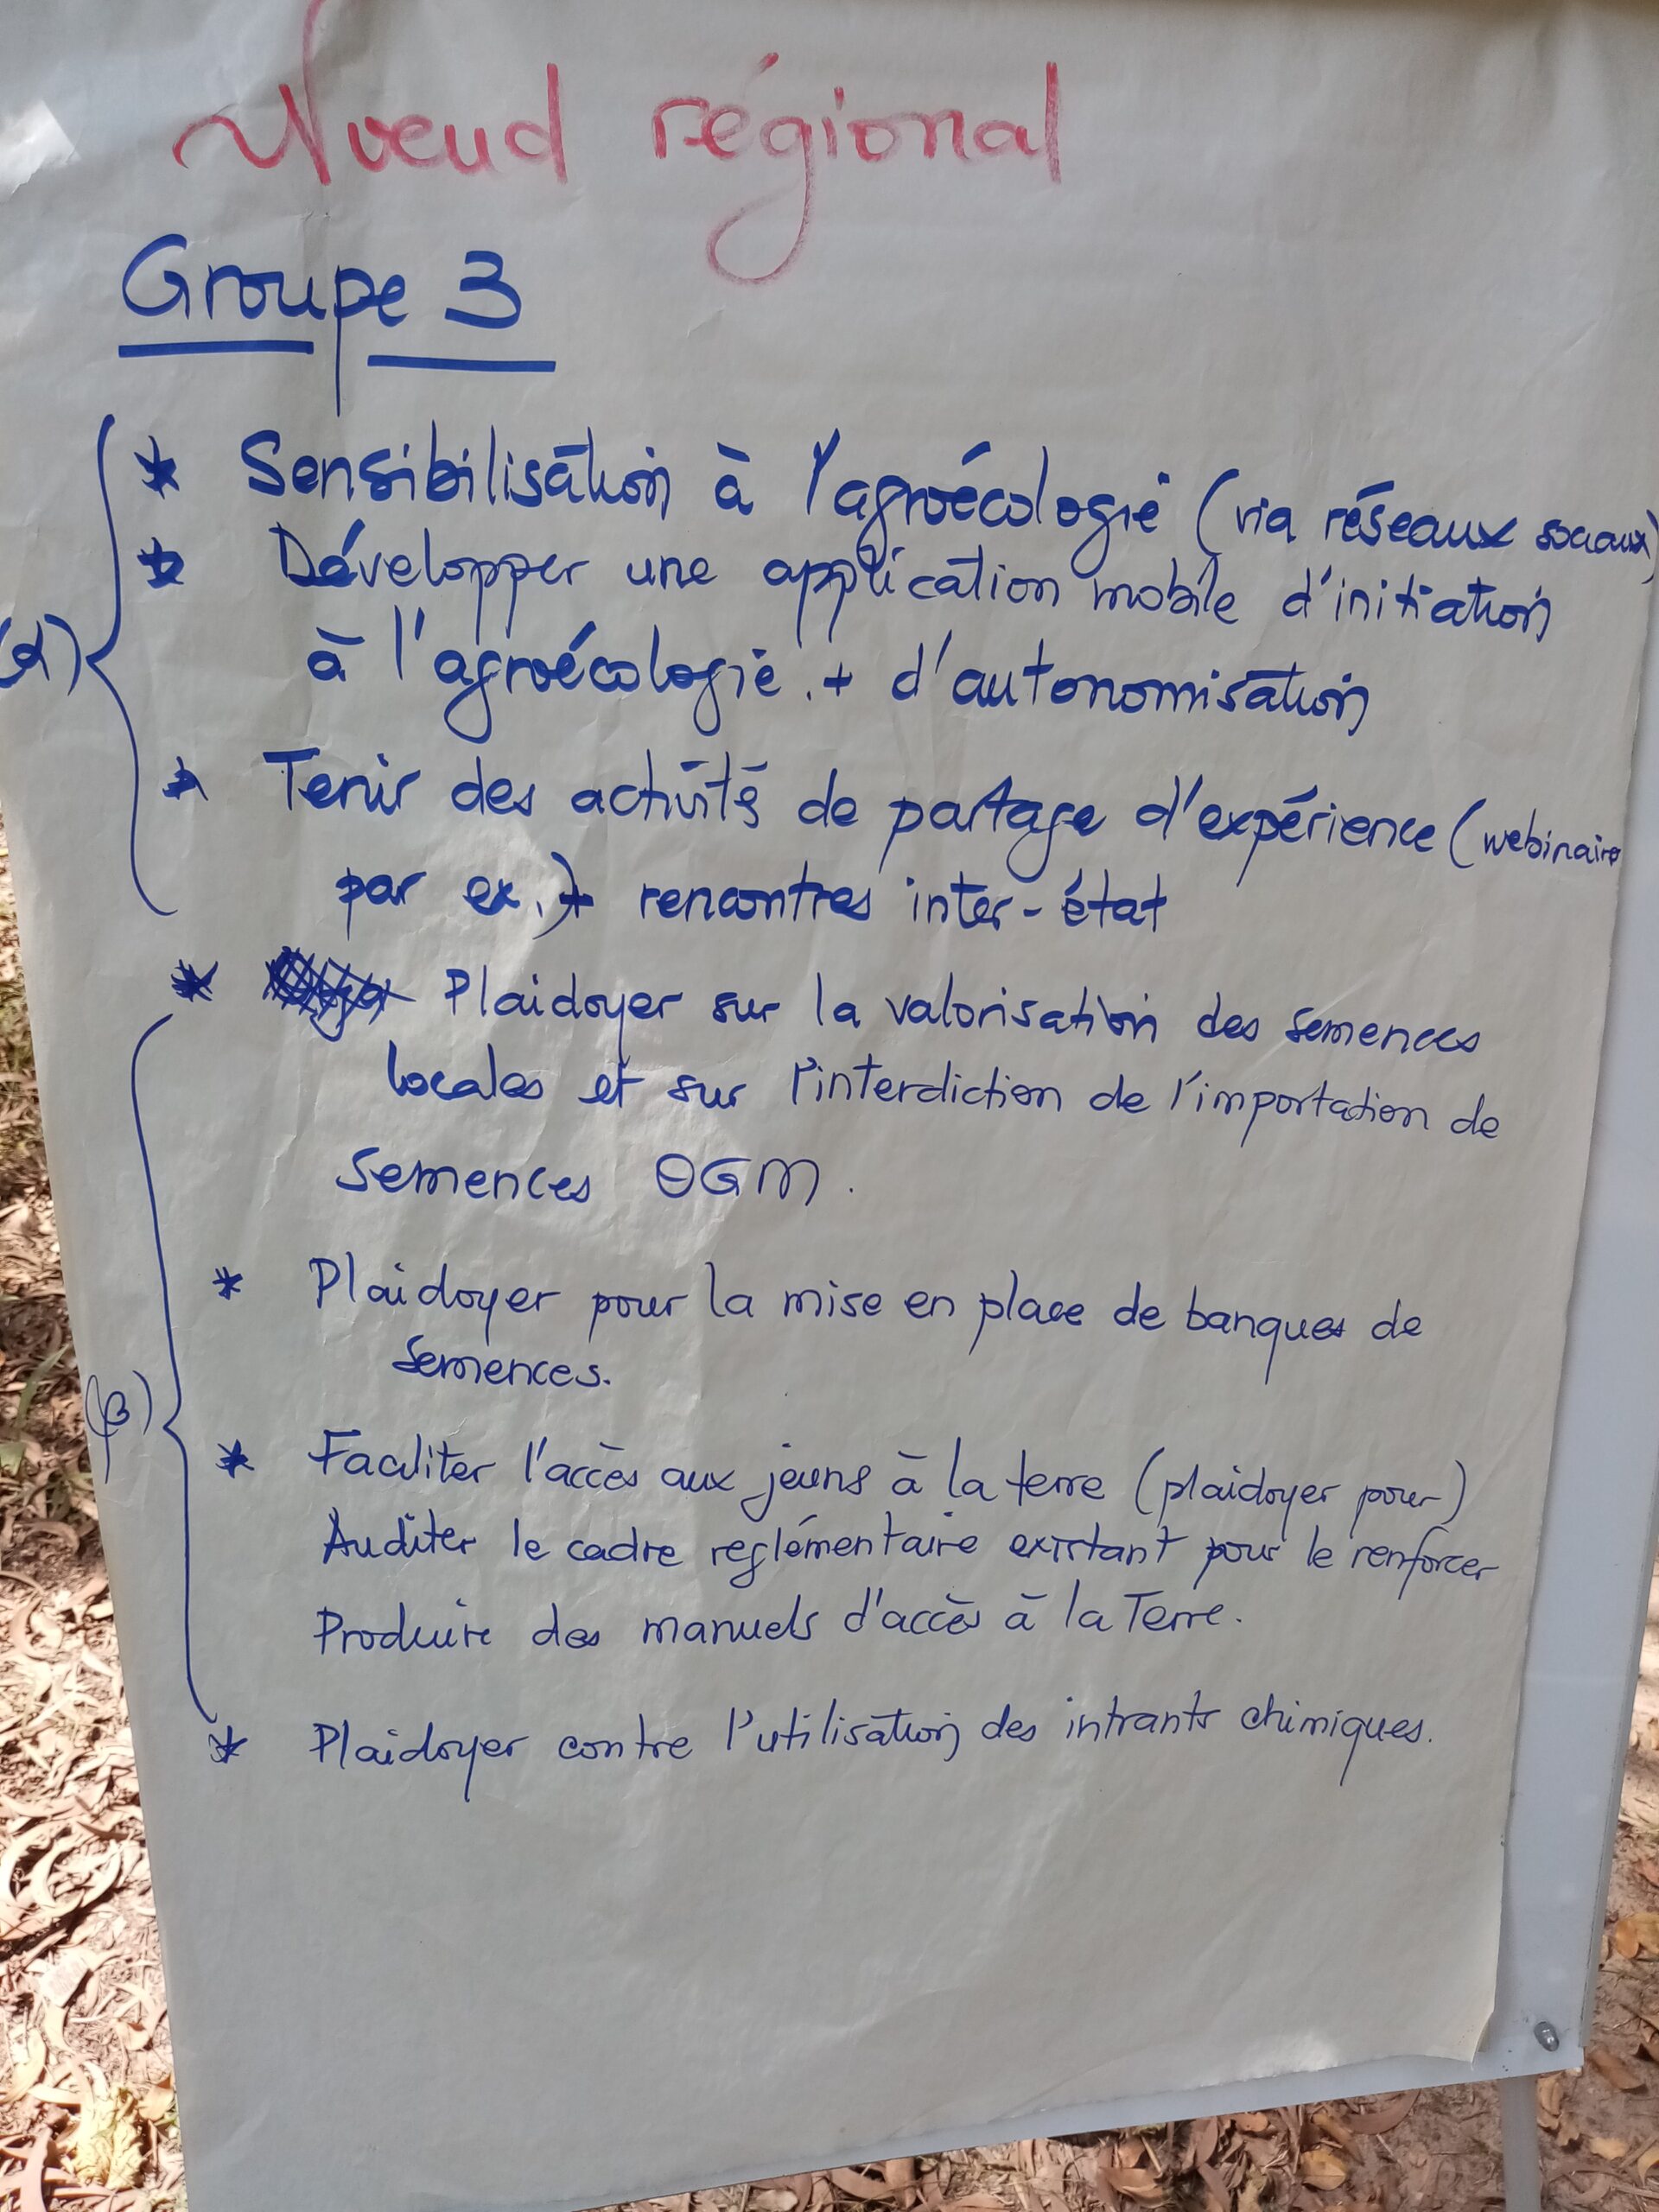 Noeud régional
Groupe 3
* Sensibilisation à l'agroécologie (via réseaux sociaux)
* Développer une application mobile d'initiation
(α)
à l'agroécologie. + d'autonomisation
* Tenir des activités de partage d'expérience (webinaire
par ex.) + rencontres inter-état
* Plaidoyer sur la valorisation des semences
locales et sur l'interdiction de l'importation de
semences OGM.
* Plaidoyer pour la mise en place de banques de
semences.
(β)
* Faciliter l'accès aux jeuns à la terre (plaidoyer pour)
Auditer le cadre reglémentaire existant pour le renforcer
Produire des manuels d'accès à la Terre.
* Plaidoyer contre l'utilisation des intrants chimiques.